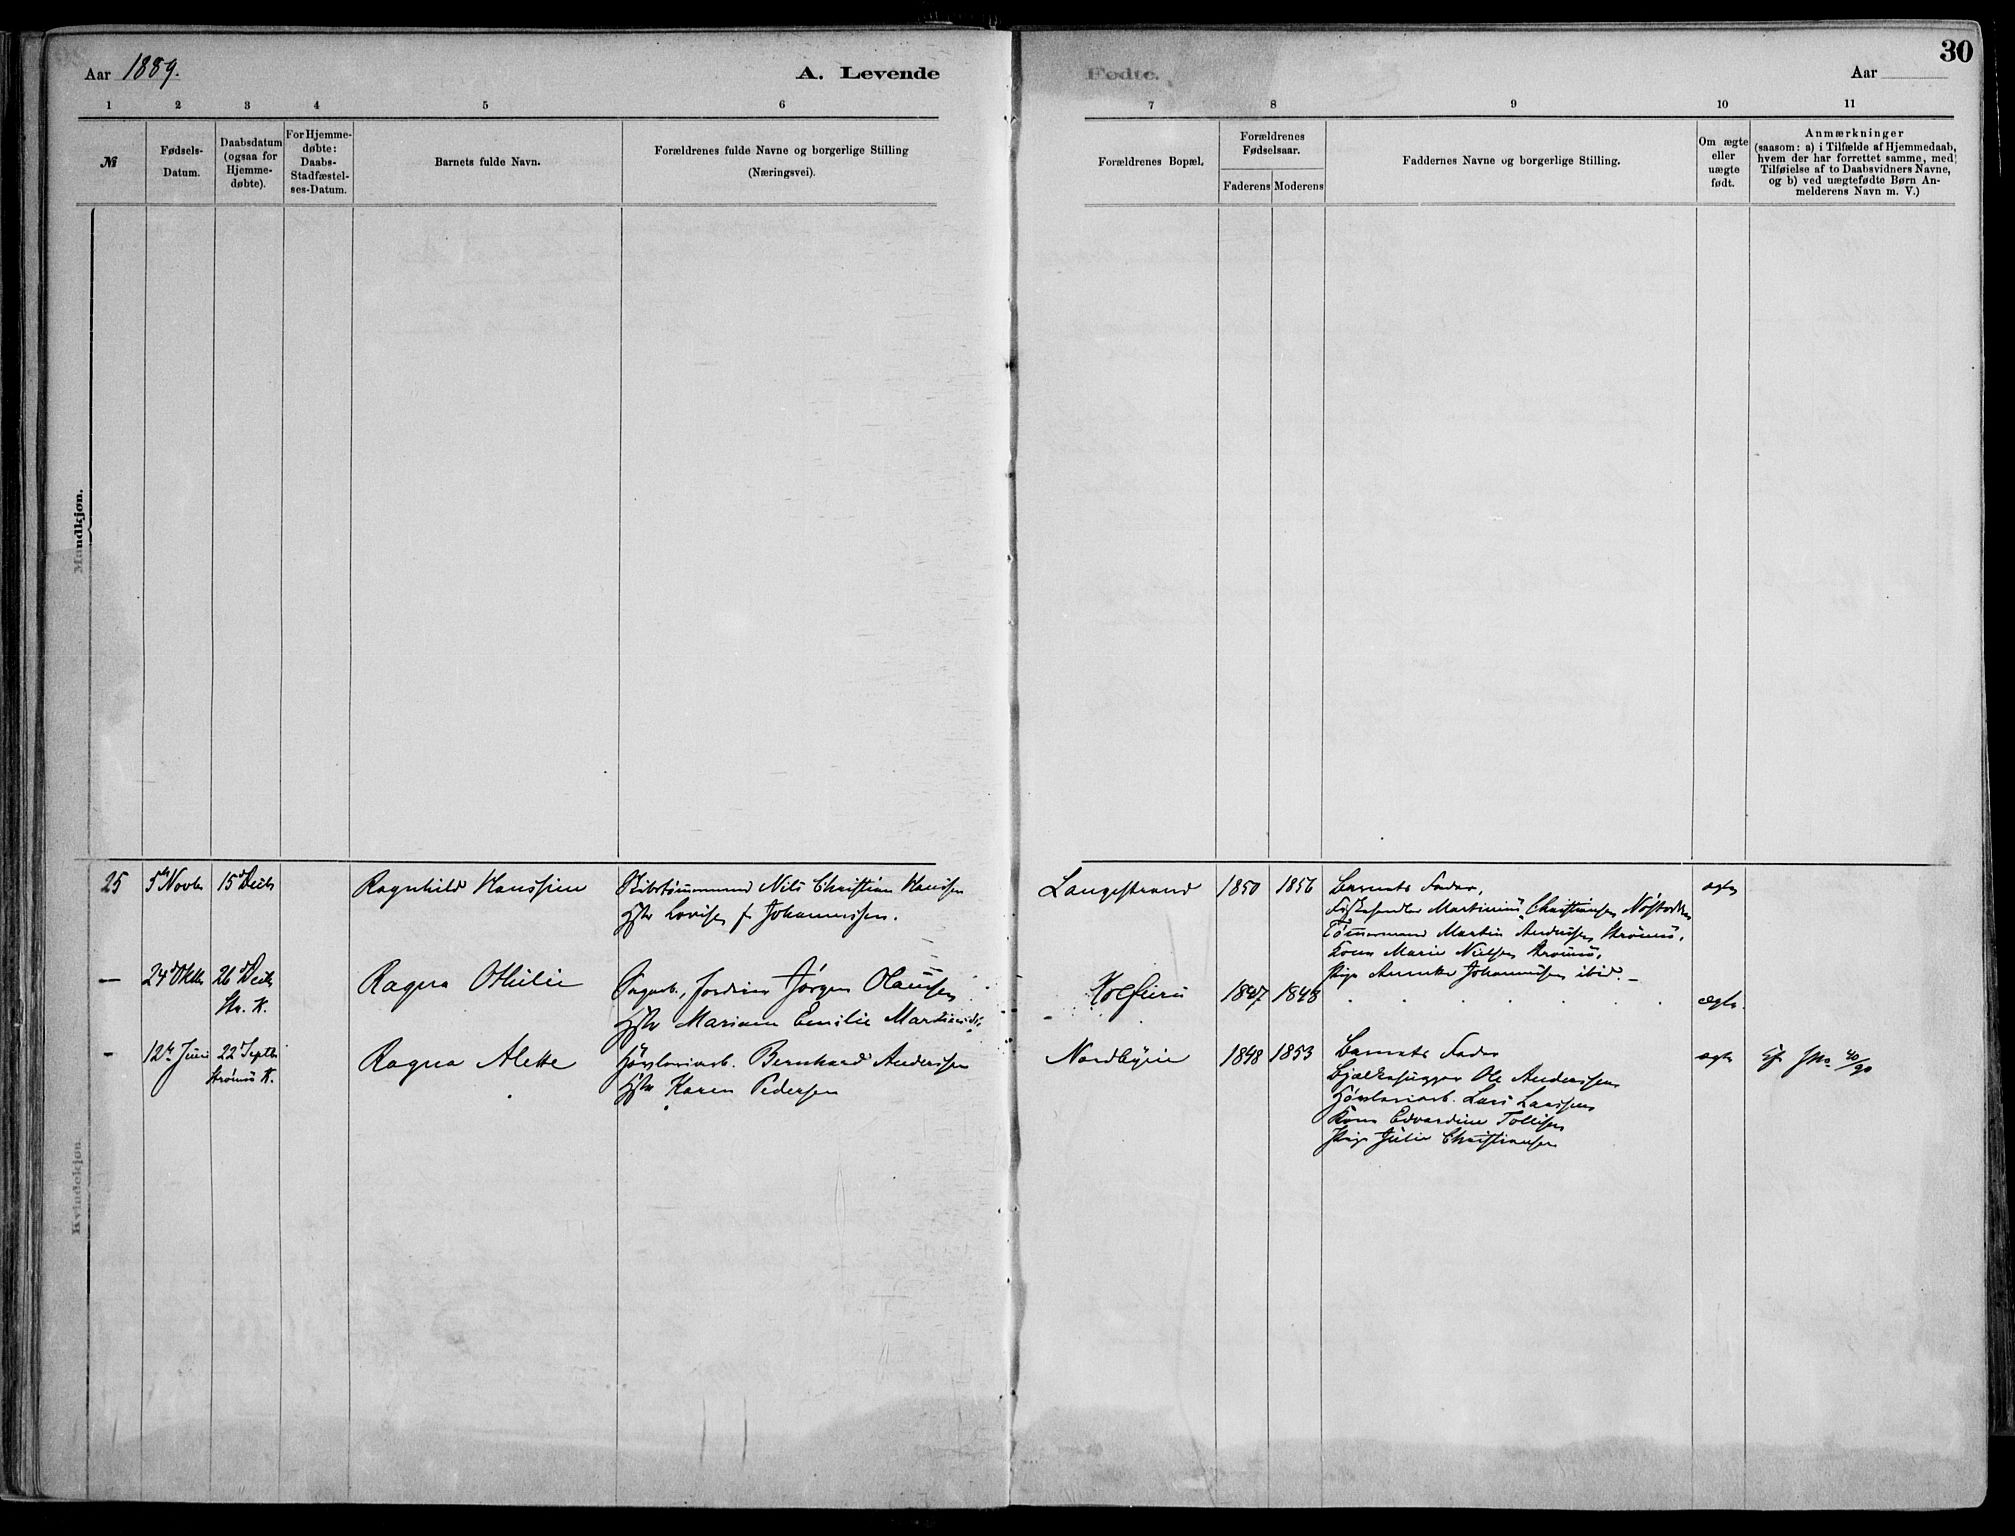 30
Aar 1889.
A. Levende
Fødte.
Aar
1 2 3 4 5 6
7 8 9 10 11
№
Fødsels-
Datum.
Daabsdatum
(ogsaa for
Hjemme-
døbte).
For Hjemme-
døbte:
Daabs-
Stadfæstel-
ses-Datum.
Barnets fulde Navn.
Forældrenes fulde Navne og borgerlige Stilling
(Næringsvei).
Forældrenes Bopæl.
Forældrenes
Fødselsaar.
Faderens Moderens
Faddernes Navne og borgerlige Stilling.
Om ægte
eller
uægte
født.
Anmærkninger
(saasom: a) i Tilfælde af Hjemmedaab,
hvem der har forrettet samme, med
Tilføielse af to Daabsvidners Navne,
og b) ved uægtefødte Børn An-
melderens Navn m. V.)
Mandkjøn.
25 5te Novbr 15d Decbr Ragnhild Hanssine
Nils Christian Hanssen
Hstr Lovise f. Johannessen.
Langestrand 1850 1856 Barnets Fader,
Martinius Christiansen
Tømmermand Martin Anderssen Strømsö,
Kona Marie Nielsen Strømsö,
Pige Johannessen ibid. ægte
— 24d Oktbr 26d Decbr
Str. K.
Ragna Othilie
Jørgen Olaussen
Hstr Mariane Emilie
1847 1848 ægte.
- 12te Juni 22d Septbr
Strømsö K.
Ragna Alette
Bernhard Anderssen
Hstr Karen Pedersen
Nordbyeie 1848 1853 Barnets Fader
Ole Anderssen
Høvleriarb. Lars Larssen
Kona Edvardine Tollefsen
Pige Julie Christiansen
ægte
Kvindekjøn